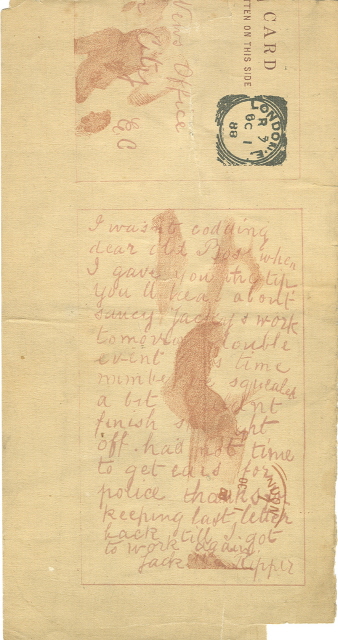 CARD
TTEN ON THIS SIDE
News Office
City
E.C
LONDON.E
OC 1
88
I wasnt codding
dear old Boss when
I gave you the tip
you ll hear about
saucy Jackys work
tomorrow double
event time
number squealed
a bit
finish
off. had not time
to get ears for
police thanks for
keeping last letter
back till I got
to work again.
Jack Ripper